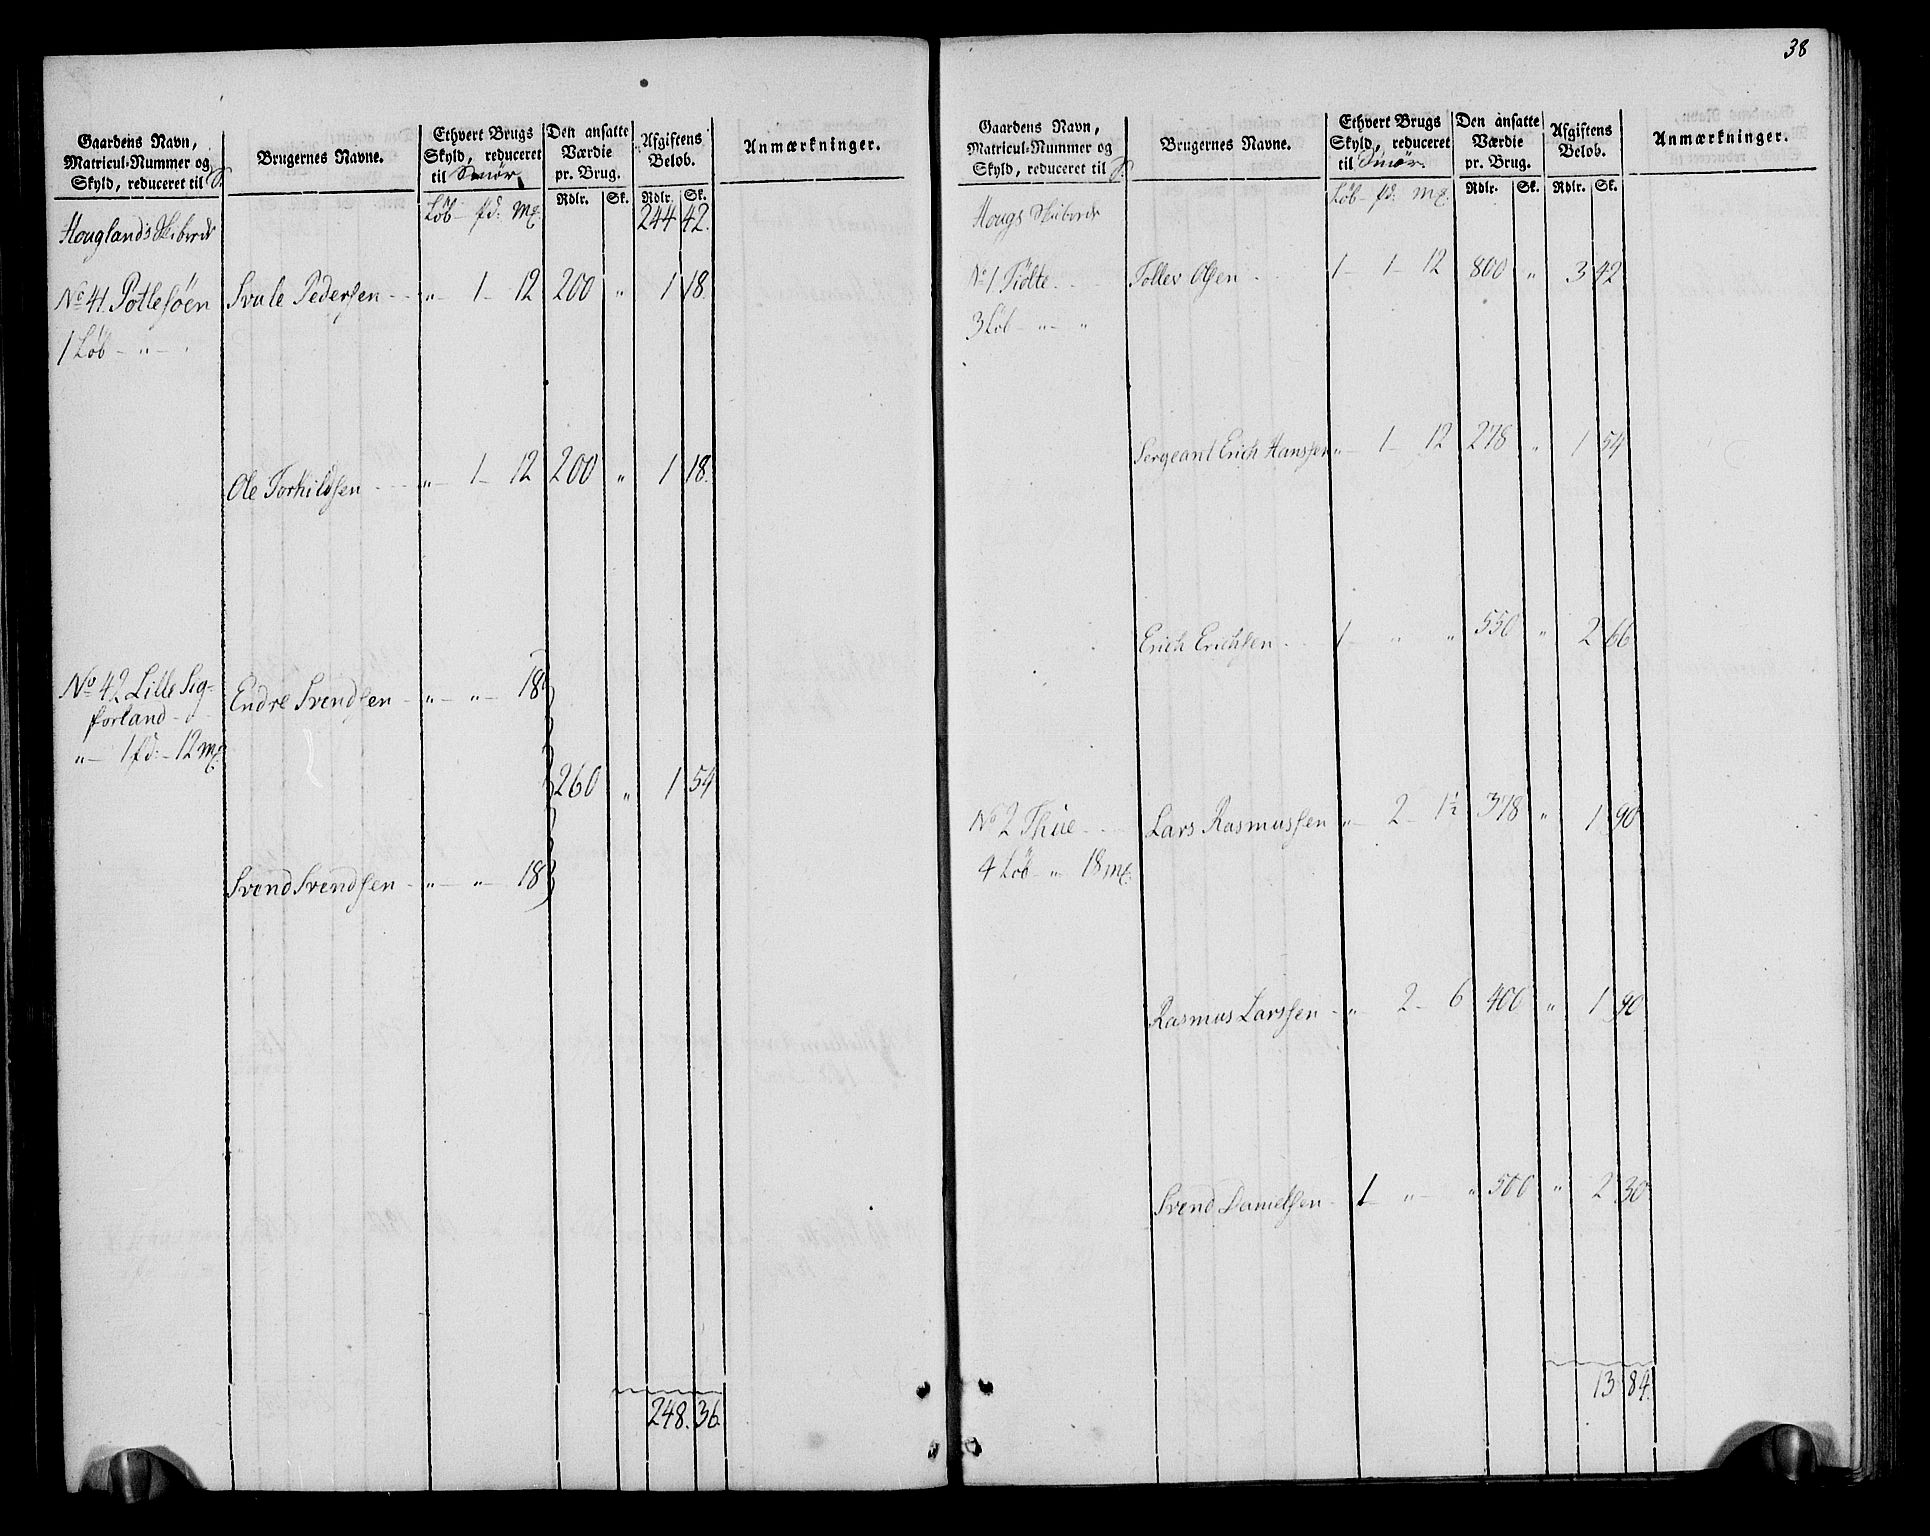 Gaardens Navn, Matricul-Nummer og Skyld, reduceret til S. | Brugernes Navne. | Ethvert Brugs Skyld, reduceret til Smör. | Den ansatte Værdie pr. Brug. | Afgiftens Belob. | Anmærkninger.
Løb fd: Mk: | Rdlr. | Sk. | Rdlr. | Sk.
Houglands Skibrede 244 42.
No 41. Potlesøen Svale Pedersen - - „ - 1 - 12 200 „ 1 18
1 Løb - „ - „
Ole Torkildsen - - - „ - 1 - 12 200 „ 1 18.
No 42 Lille Sig- Endre Svendsen - „ - „ - 18
forland -
„ - 1 fd: - 12 mk
260 „ 1 54
Svend Svendsen - „ - „ - 18
248. 36
38
Gaardens Navn, Matricul-Nummer og Skyld, reduceret til S. | Brugernes Navne. | Ethvert Brugs Skyld, reduceret til Smör. | Den ansatte Værdie pr. Brug. | Afgiftens Belob. | Anmærkninger.
Løb - fd: Mk: | Rdlr. | Sk. | Rdlr. | Sk.
Hougs Skibrede
No 1 Tiölte - - Tollev Olsen - - 1 - 1 - 12 800 „ 3 42
3 Løb - „ - „
Sergeant Erich Hanssen „ - 1 - 12 278 „ 1 54
Erich Erichsen - - 1 - „ „ 550 „ 2 66
No 2 Thue - - Lars Rasmussen „ - 2 - 1½ 378 „ 1 90
4 Løb - „ 18 mk:
Rasmus Larssen - „ - 2 - 6 400 „ 1 90
Svend Danielsen - 1 - „ - „ 500 „ 2 30
13 84.